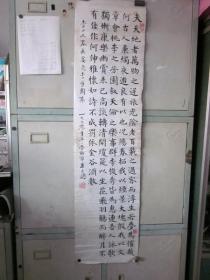 夫天地者萬物之逆旅光陰者百代之過客而浮生若夢為歡幾
何古人秉燭夜遊良有以也況陽春召我以煙景大塊假我以文
章會桃李之芳園序天倫之樂事群季俊秀皆為惠連吾人詠歌
獨慚康樂幽賞未已高談轉清開瓊筵以坐花飛羽觴而醉月不
有佳作何伸雅懷如詩不成罰依金谷酒數